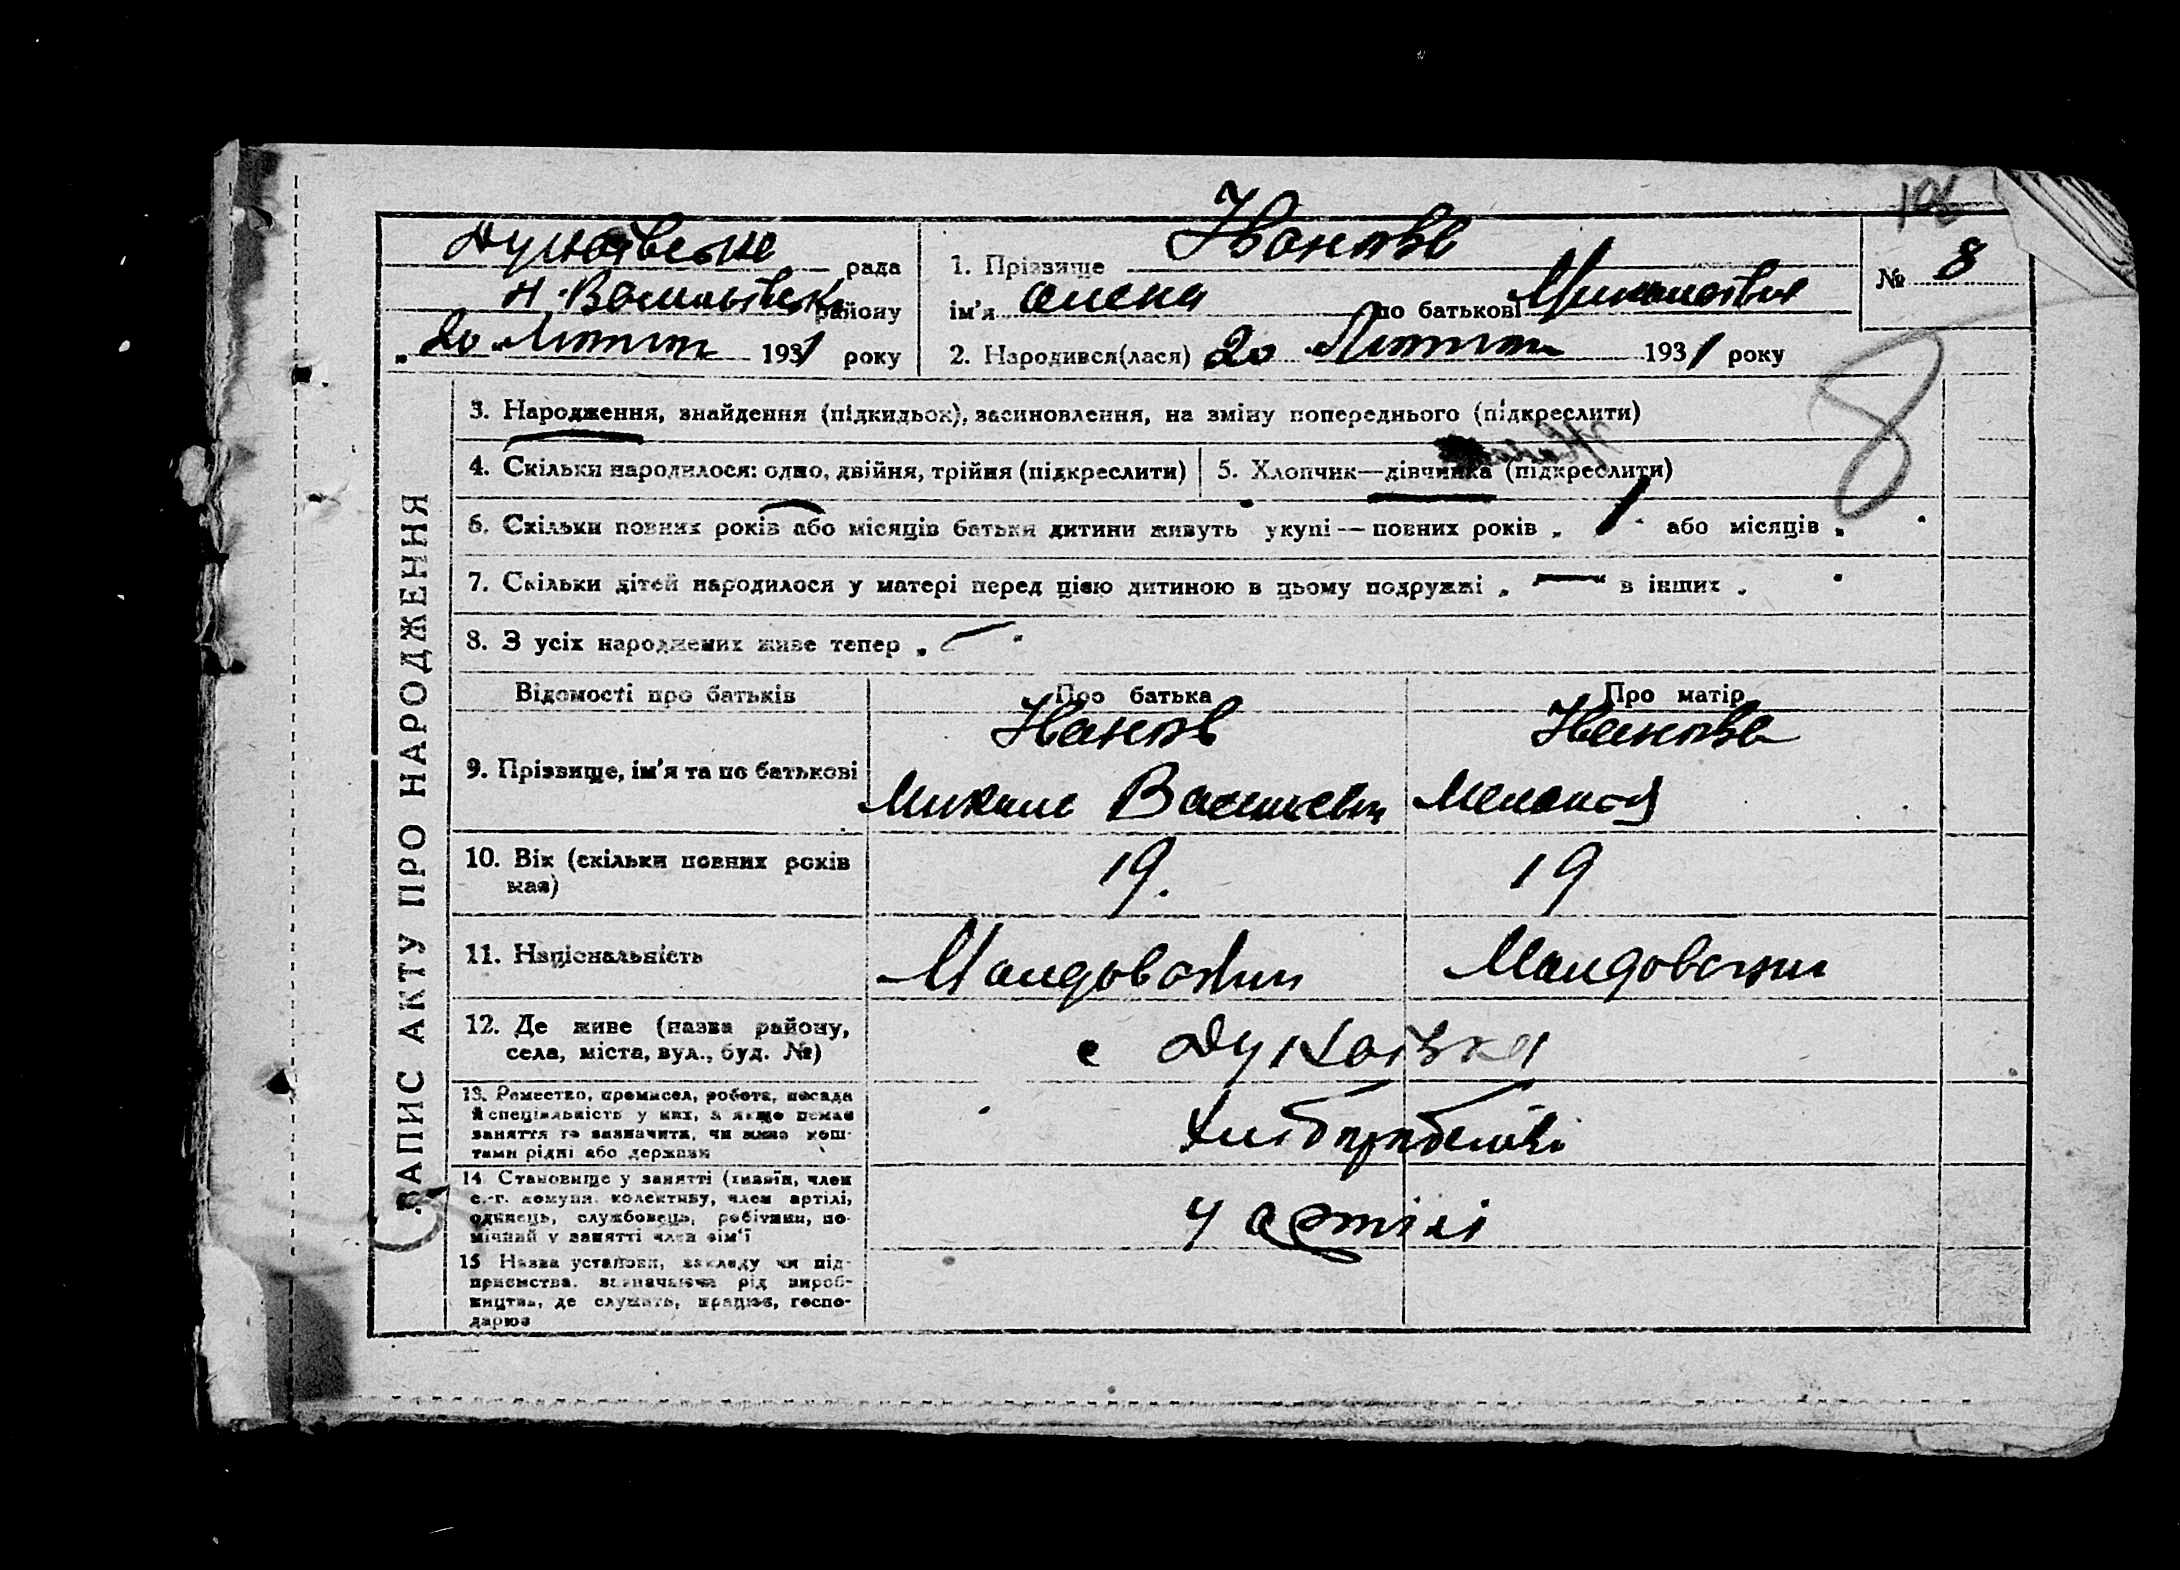 рада
району
„ 20 " Лютого 1931 року
1. Прізвище
ім'я Олена по батькові Миколаївна
2. Народився(лася) 20 Лютого 1931 року
№ 8
8
ЗАПИС АКТУ ПРО НАРОДЖЕННЯ
3. Народження, знайдення (підкидьок), засиновлення, на зміну попереднього (підкреслити)
4. Скільки народилося: одно, двійня, трійня (підкреслити)
5. Хлопчик—дівчинка (підкреслити)
6. Скільки повних років або місяців батьки дитини живуть укупі — повних років „ 1 " або місяців „ "
7. Скільки дітей народилося у матері перед цією дитиною в цьому подружжі „ — " в інших „ "
8. З усіх народжених живе тепер „ — "
Відомості про батьків
Про батька
Про матір
9. Прізвище, ім'я та по батькові
Микола Васильевич
Меланія
10. Вік (скільки повних років
має)
19.
19
11. Національність
Молдованин
Молдовани
12. Де живе (назва району,
села, міста, вул., буд. №)
с
13. Ремество, промисел, робота, посада
й спеціяльність у них, а якщо немає
заняття то зазначити, чи живе кош-
тами рідні або держави
Хлібороби
14. Становище у занятті (хазяїн, член
с.-г. комуни, колективу, член артілі,
одинець, службовець, робітник, по-
мічний у занятті член сім'ї
у артілі
15. Назва установи, закладу чи під-
приємства, зазначаючи рід вироб-
ництва, де служить, працює, госпо-
дарює